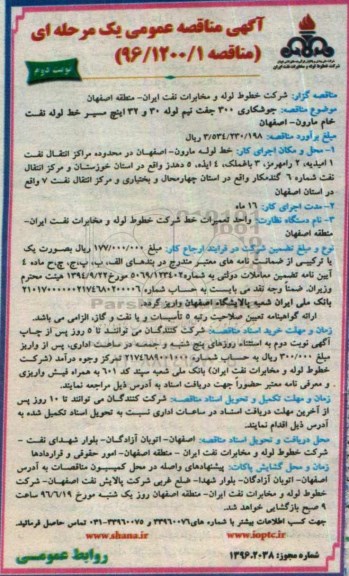 آگهی مناقصه عمومی یک مرحله ای
(مناقصه ۹۶/۱۲۰۰/۱)
نوبت دوم
مناقصه گزار: شرکت خطوط لوله و مخابرات نفت ایران- منطقه اصفهان
موضوع مناقصه: جوشکاری ۳۰۰ جفت نیم لوله ۳۰ و ۳۲ اینچ مسیر خط لوله نفت
خام مارون- اصفهان
مبلغ برآورد مناقصه: ۳/۵۳۴/۲۳۰/۱۹۸ ریال
۱- محل و مکان اجرای کار: خط لوله مارون- اصفهان در محدوده مراکز انتقال نفت
۱ امیدیه، ۲ رامهرمز، ۳ باغملک، ۴ ایذه، ۵ دهدز واقع در استان خوزستان و مرکز انتقال
نفت شماره ۶ گندمکار واقع در استان چهارمحال و بختیاری و مرکز انتقال نفت ۷ واقع
در استان اصفهان
۲- مدت اجرای کار: ۱۶ ماه
۳- نام دستگاه نظارت: واحد تعمیرات خط شرکت خطوط لوله و مخابرات نفت ایران-
منطقه اصفهان
نوع و مبلغ تضمین شرکت در فرایند ارجاع کار: مبلغ ۱۷۷/۰۰۰/۰۰۰ ریال بصورت یک
یا ترکیبی از ضمانت نامه های معتبر مندرج در بندهای الف، ب، پ، ج، چ، ح ماده ۴
آیین نامه تضمین معاملات دولتی به شماره ۱۲۳۴۰۲/ت۵۰۶۵۹ه مورخ ۱۳۹۴/۹/۲۲ هیئت محترم
وزیران. ضمنا وجه نقد می بایست به حساب شماره
بانک ملی ایران شعبه پالایشگاه اصفهان واریز گردد.
ارائه گواهینامه تعیین صلاحیت رتبه ۵ تأسیسات و یا نفت و گاز، الزامی می باشد.
زمان و مهلت خرید اسناد مناقصه: شرکت کنندگان می توانند تا ۵ روز پس از چاپ
آگهی نوبت دوم به استثناء روزهای پنج شنبه و جمعه در ساعات اداری، پس از واریز
مبلغ ۳۰۰/۰۰۰ ریال به حساب شماره تمرکز وجوه درآمد (شرکت
خطوط لوله و مخابرات نفت ایران) بانک ملی شعبه سپند کد ۶۰۱ به همراه فیش واریزی
و معرفی نامه معتبر حضوراً جهت دریافت اسناد به آدرس ذیل مراجعه نمایند.
زمان و مهلت تکمیل و تحویل اسناد مناقصه: شرکت کنندگان می توانند تا ۱۰ روز پس
از آخرین مهلت دریافت اسناد در ساعات اداری نسبت به تحویل اسناد تکمیل شده به
آدرس ذیل اقدام نمایند.
محل دریافت و تحویل اسناد مناقصه: اصفهان- اتوبان آزادگان- بلوار شهدای نفت -
شرکت خطوط لوله و مخابرات نفت ایران - منطقه اصفهان- امور حقوقی و قراردادها
زمان و محل گشایش پاکات: پیشنهادهای واصله در محل کمیسیون مناقصات به آدرس
اصفهان- اتوبان آزادگان- بلوار شهدا- ضلع غربی شرکت پالایش نفت اصفهان- شرکت
خطوط لوله و مخابرات نفت ایران- منطقه اصفهان روز یک شنبه مورخ ۹۶/۶/۱۹ ساعت
۹ صبح بازگشایی خواهد شد.
جهت کسب اطلاعات بیشتر با شماره های ۳۳۹۶۰۰۷۶ و ۳۳۹۶۰۰۷۵-۰۳۱ تماس حاصل فرمائید.
www.shana.ir www.ioptc.ir
شماره مجوز: ۱۳۹۶.۲۰۳۸
روابط عمومی